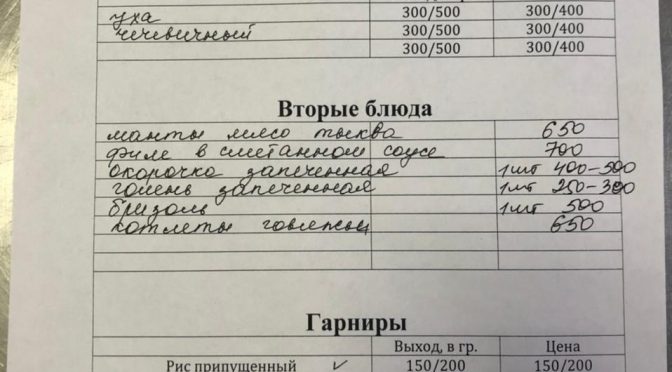 уха 300/500 300/400
чечевичный 300/500 300/400
300/500 300/400
Вторые блюда
манты мясо тыква 650
филе в сметанном соусе 700
окорочка запеченная 1шт 400-500
голень запеченная 1шт 250-300
бризоль 1шт 500
котлеты говяжьи 650
Гарниры
Выход, в гр. Цена
Рис припущенный 150/200 150/200